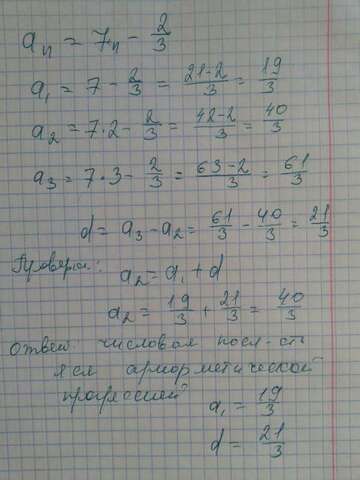 aₙ = 7·n - 2/3
a₁ = 7 - 2/3 = (21-2)/3 = 19/3
a₂ = 7·2 - 2/3 = (42-2)/3 = 40/3
a₃ = 7·3 - 2/3 = (63-2)/3 = 61/3
d = a₃ - a₂ = 61/3 - 40/3 = 21/3
Проверка:
a₂ = a₁ + d
a₂ = 19/3 + 21/3 = 40/3
Ответ: числовая посл-сть
явл арифметической
прогрессией
a₁ = 19/3
d = 21/3